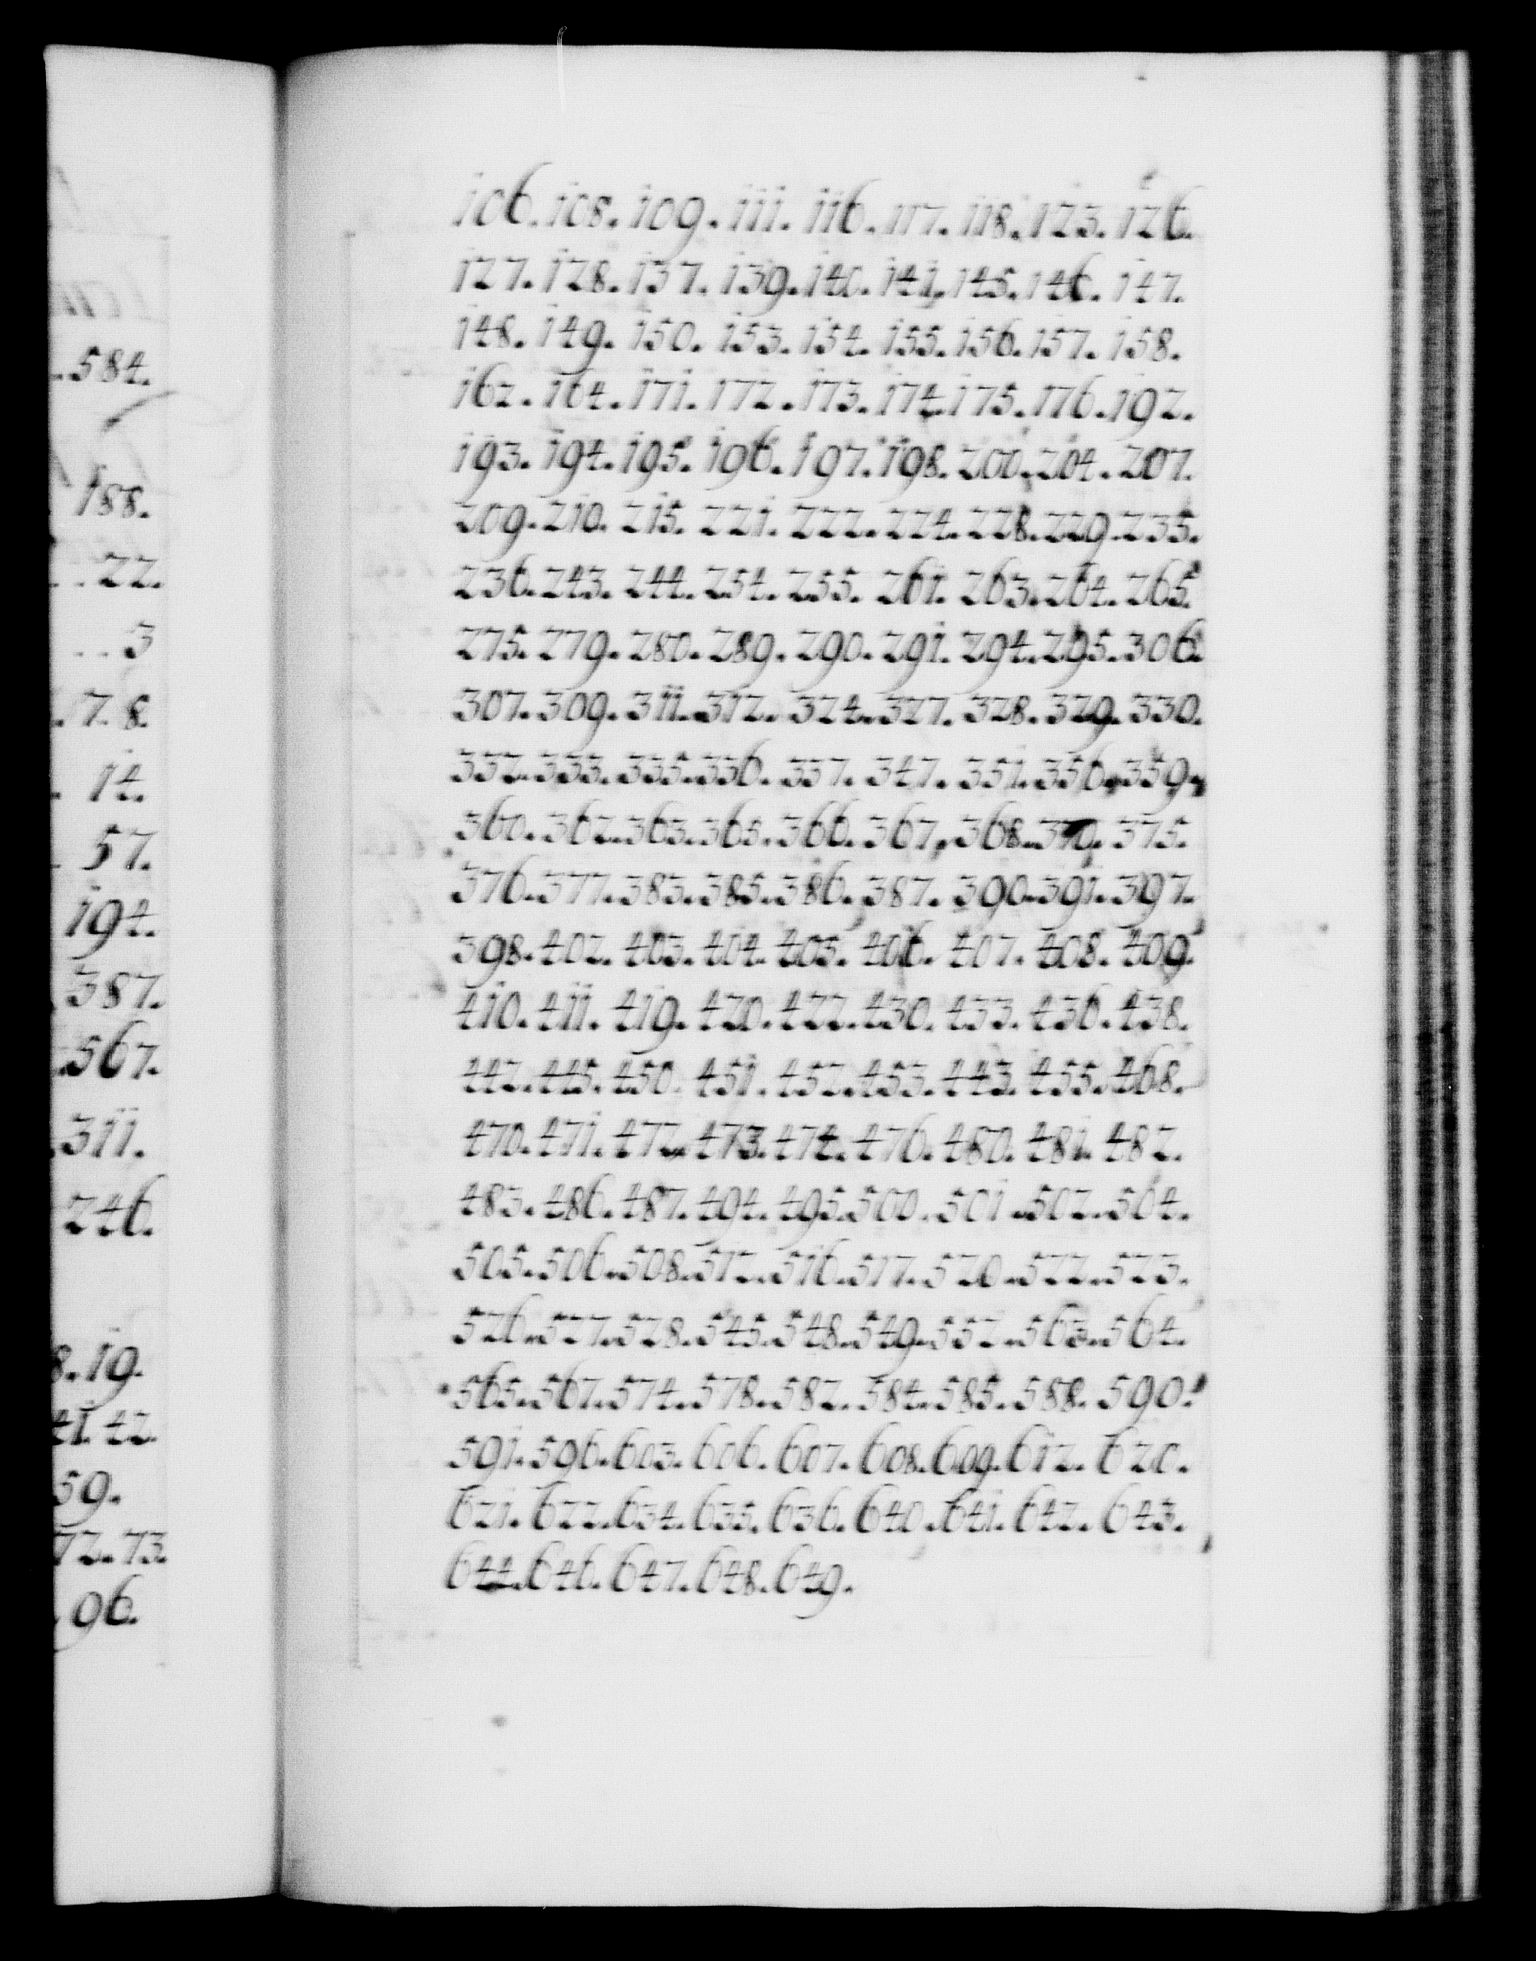 106. 108. 109. 111. 116. 117. 118. 123. 126.
127. 128. 137. 139. 140. 141. 145. 146. 147.
148. 149. 150. 153. 154. 155. 156. 157. 158.
162. 164. 171. 172. 173. 174. 175. 176. 192.
193. 194. 195. 196. 197. 198. 200. 204. 207.
209. 210. 215. 221. 222. 224. 228. 229. 235.
236. 243. 244. 254. 255. 261. 263. 264. 265.
275. 279. 280. 289. 290. 291. 294. 295. 306.
307. 309. 311. 312. 324. 327. 328. 329. 330.
332. 333. 335. 336. 337. 347. 351. 356. 359.
360. 362. 363. 365. 366. 367. 368. 370. 375.
376. 377. 383. 385. 386. 387. 390. 391. 397.
398. 402. 403. 404. 405. 406. 407. 408. 409.
410. 411. 419. 420. 422. 430. 433. 436. 438.
442. 445. 450. 451. 452. 453. 443. 455. 468.
470. 471. 472. 473. 474. 476. 480. 481. 482.
483. 486. 487. 494. 495. 500. 501. 502. 504.
505. 506. 508. 512. 516. 517. 520. 522. 523.
526. 527. 528. 545. 548. 549. 552. 563. 564.
565. 567. 574. 578. 582. 584. 585. 588. 590.
591. 596. 603. 606. 607. 608. 609. 612. 620.
621. 622. 634. 635. 636. 640. 641. 642. 643.
644. 646. 647. 648. 649.
.584.
188.
. . 22.
. . 3
. 78
. 14.
. 57.
194.
387.
.567.
.311.
246.
8. 19.
41. 42.
59.
72. 73.
. 96.